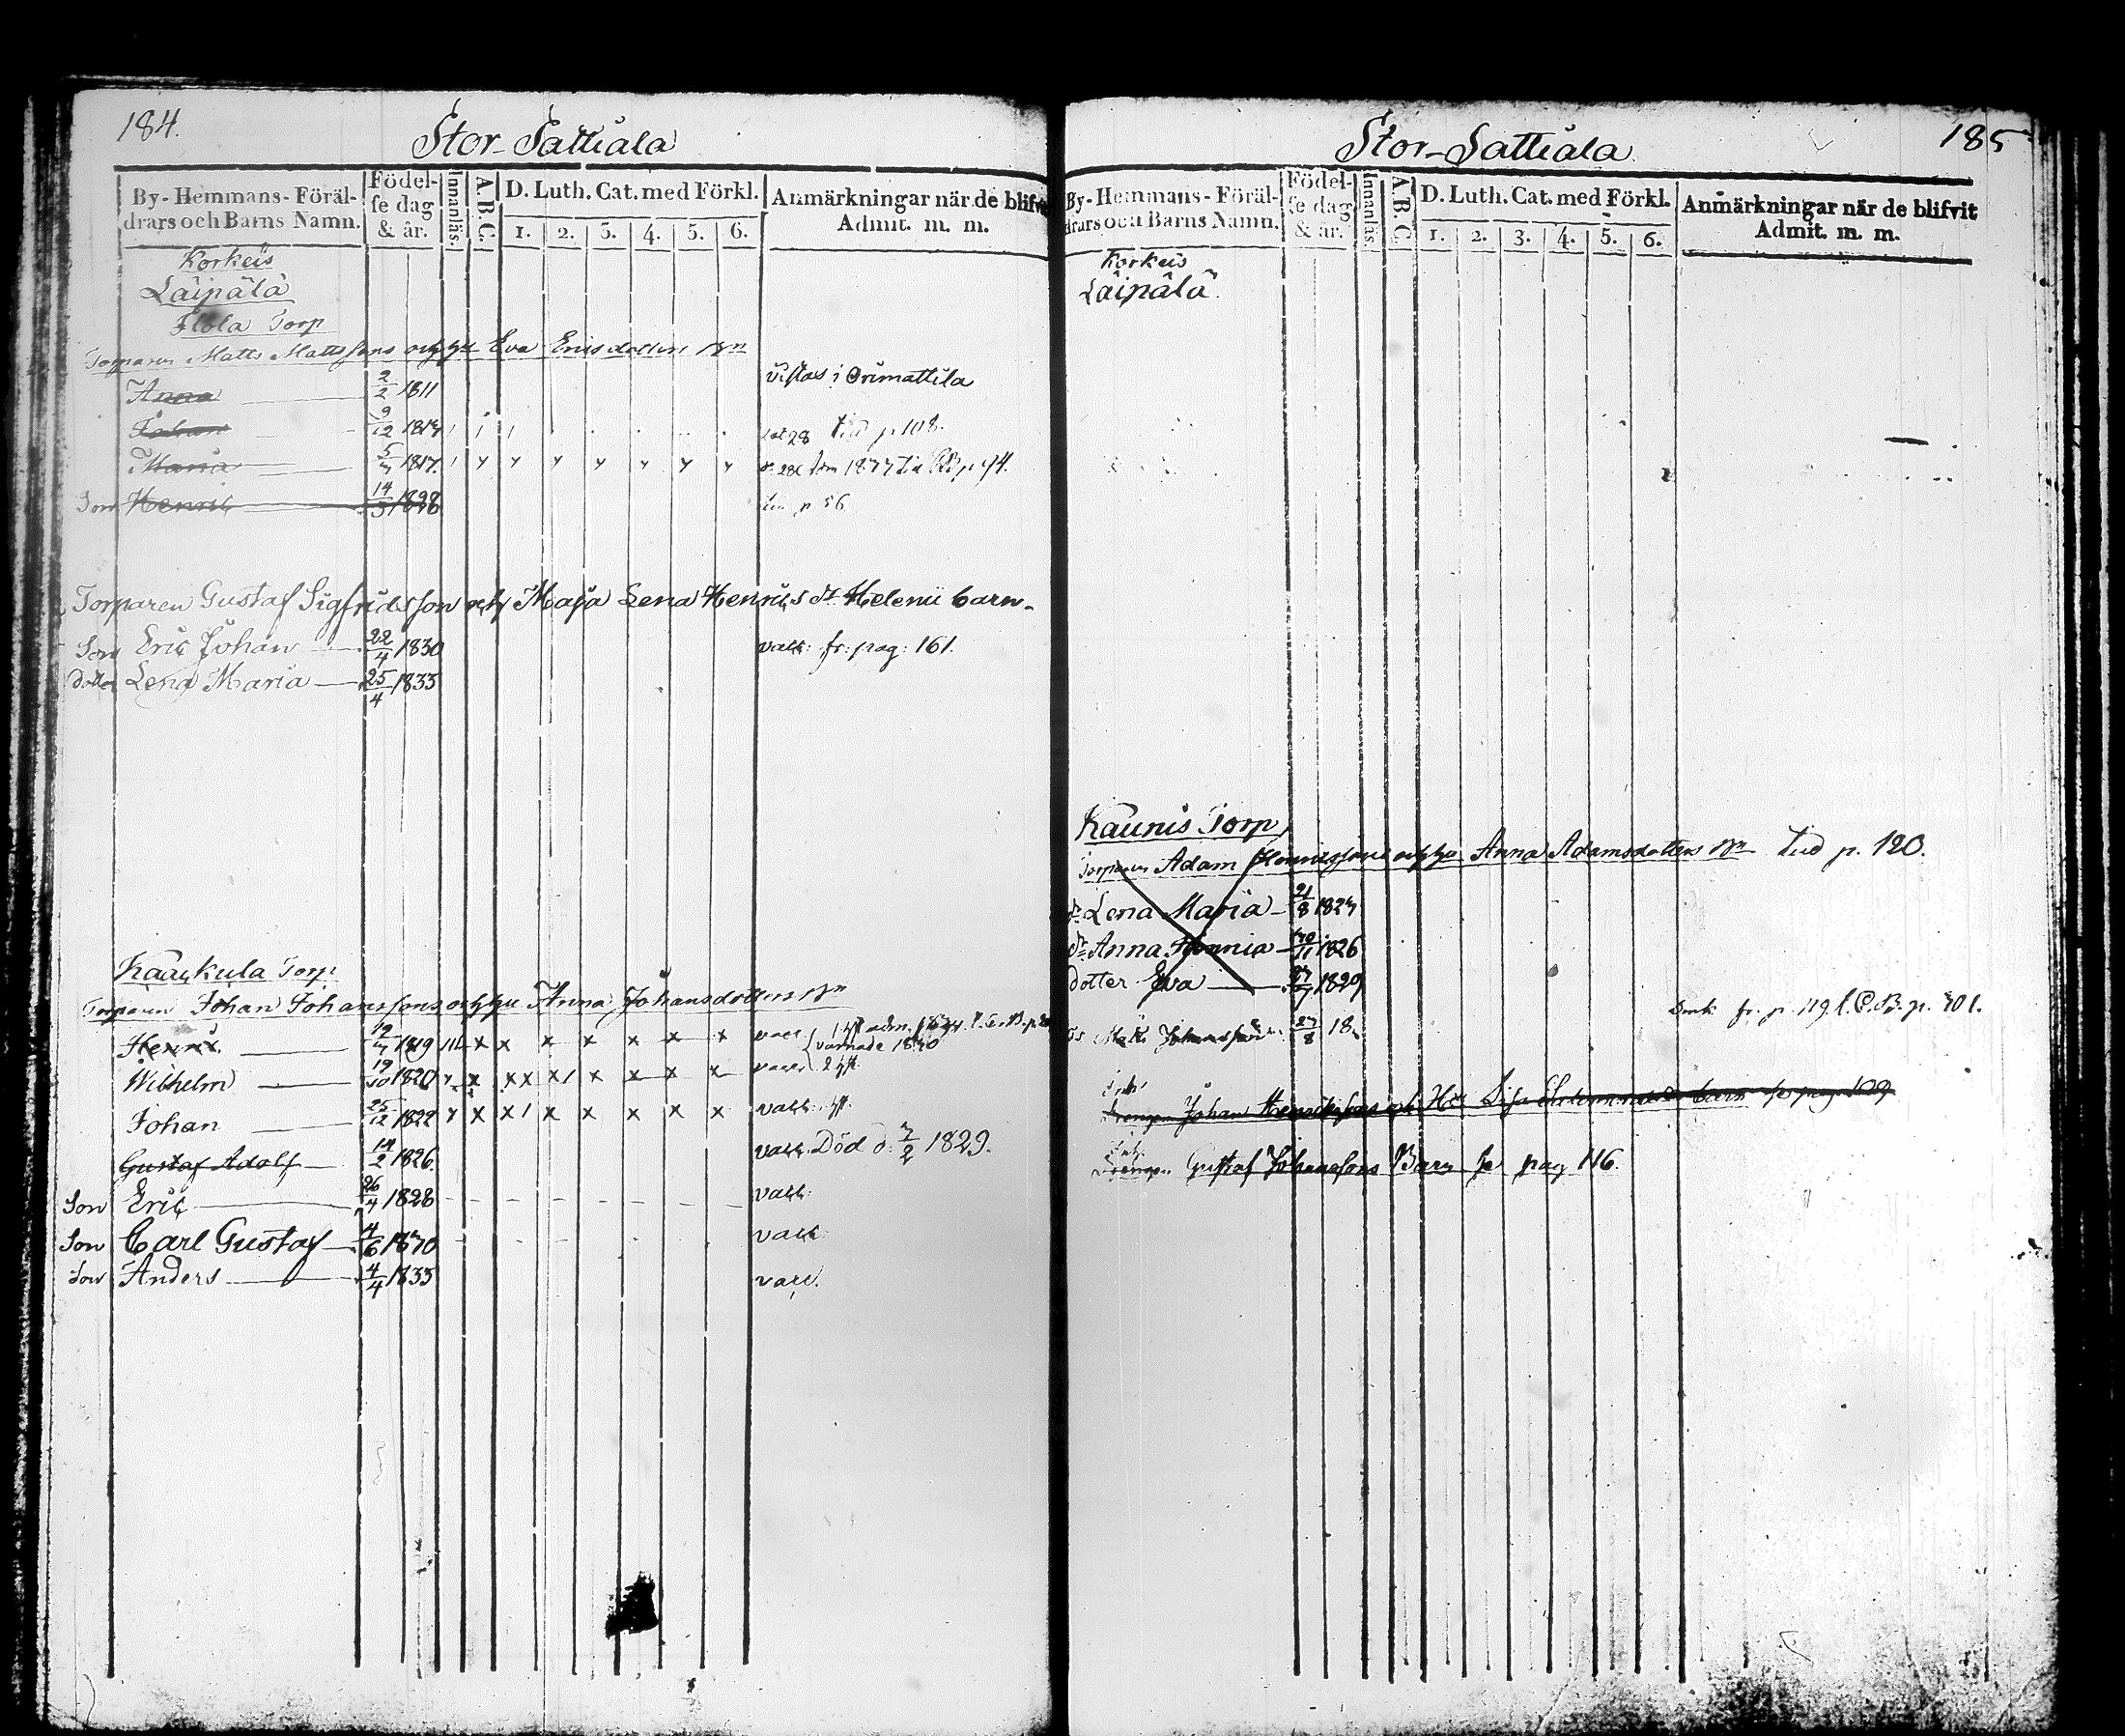 184.
Stor-Sattiala
By-Hemmans-Föräl-
drars och Barns Namn.
Födel-
se dag
& år.
Innanläs.
A.B.C.
D. Luth. Cat. med Förkl.
1. 2. 3. 4. 5. 6.
Anmärkningar när de blifvit
Admit. m. m.
Korkeis
Läipälä
Flola Torp
Torparen Matts Mattssons och hu Eva Ericsdotters Bn
Anna 2/2 1811 vistas i Orimattila
Johan 9/12 1813 p 108.
Maria 5/7 1817.
Son Henric 14/5 1828 p 56
Torparen Gustaf Sigfridsson och Maja Lena Henrics dr Helenii barn.
Son Eric Johan 22/4 1830 vacc. fr: pag: 161.
Dotter Lena Maria 25/4 1833
Kaackula Torp
Torparen Johan Johanssons och hu Anna Johansdotters Bn
Henric 12/7 1819 x x x x x x x vacc.
Wilhelm 19/10 1820 x xx x/ x x x x vacc.
Johan 25/12 1822 x x/ x x x x x vacc.
Gustaf Adolf 14/2 1826. vacc. Död d. 7/2 1829.
Son Eric 26/4 1828 vacc.
Son Carl Gustaf 4/6 1830 vacc.
Son Anders 4/4 1833 vacc.
185
Stor-Sattiala
By-Hemmans-Föräl-
drars och Barns Namn.
Födel-
se dag
& år.
Innanläs.
A.B.C.
D. Luth. Cat. med Förkl.
1. 2. 3. 4. 5. 6.
Anmärkningar när de blifvit
Admit. m. m.
Korkeis
Läipälä
Kaunis Torp
Torparen Adam Henricssons och hu Anna Adamsdotters Bn Lud p. 120.
dr Lena Maria 21/8 1823
dr Anna 1826
dotter Eva 1829
Matts Johansson 27/8 18
fr. p. 119.
Drengen Johan Henricssons och Hu Lisa barn se pag. 109
Drengen Gustaf Johanssons Barn se pag 116.